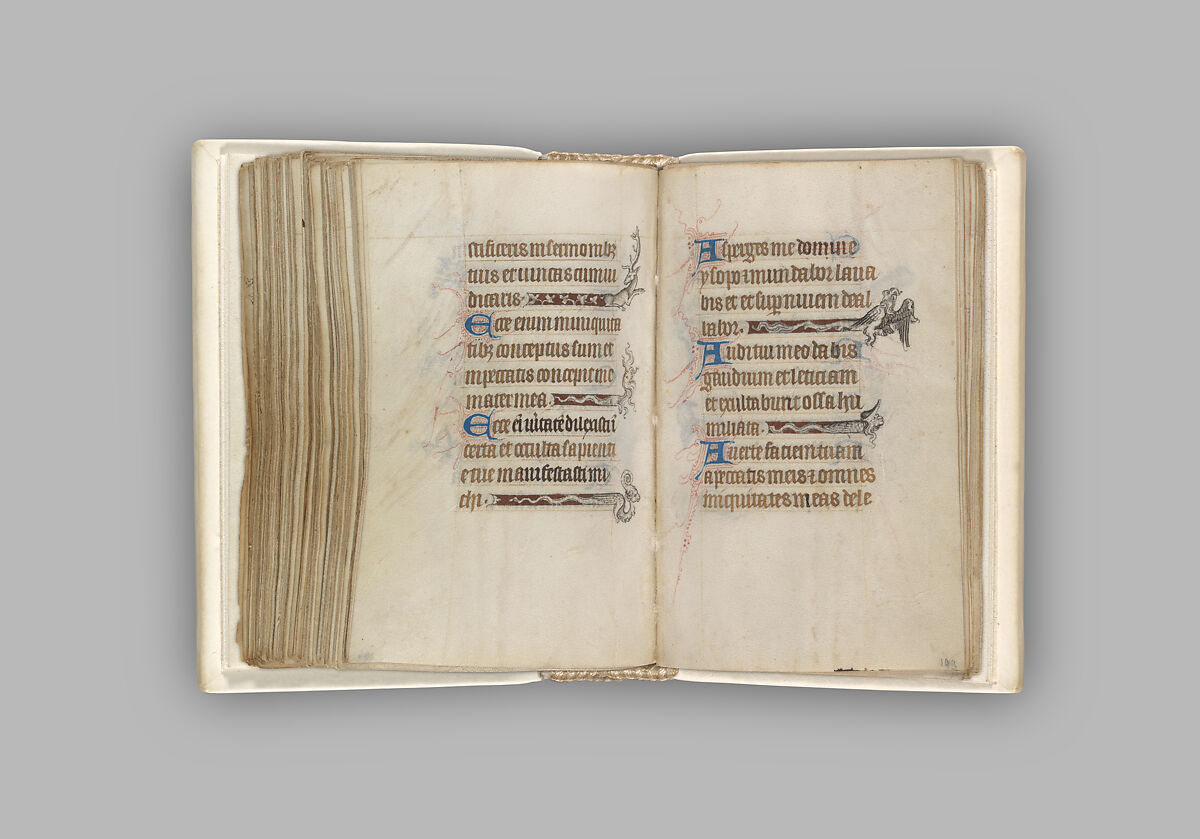 stificeris in sermonibȝ
tuis et vincas cum iu
dicaris.
Ecce enim iniquita
tibȝ conceptus sum et
in peccatis concepit me
mater mea.
Ecce eī ūitatē dilexisti
certa et occulta sapienti
e tue manifestasti mi
chi.
Asperges me domine
ysopo ⁊ mundabor laua
bis et et sup niuem deal
labor.
Auditui meo dabis
gaudium et leticiam
et exultabunt ossa hu
miliata.
Auerte faciem tuam
a peccatis meis ⁊ omnes
iniquitates meas dele